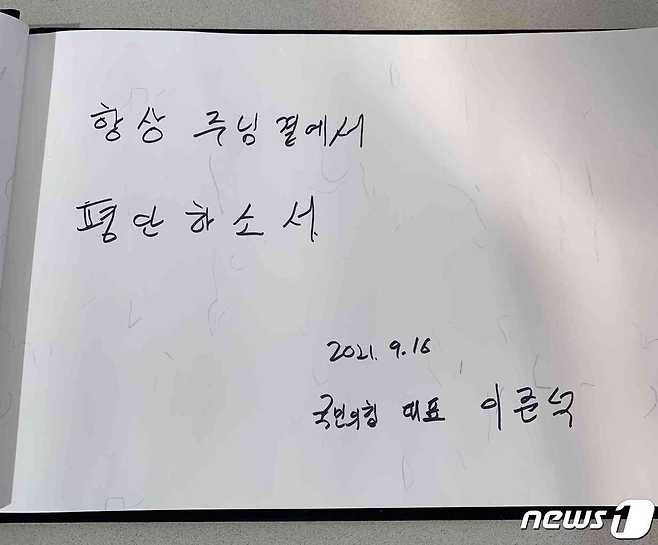 항상 주님 곁에서
평단하소서
2021. 9. 16
국민의힘 대표 이준석
news1